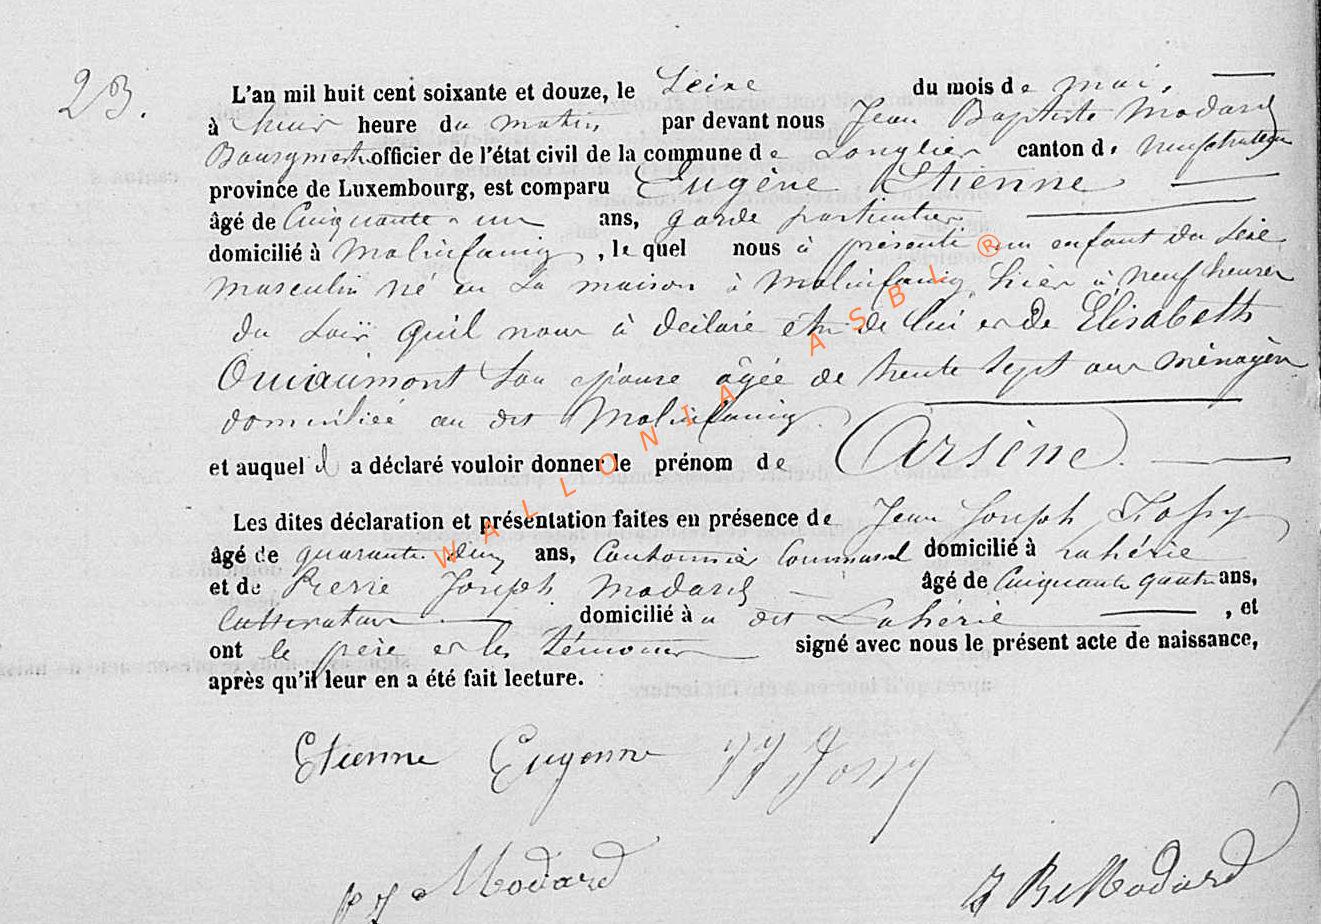 23.
L'an mil huit cent soixante et douze, le Seize du mois de mai,
à huit heure du matin, par devant nous Jean Baptiste Modard
Bourgmestre officier de l'état civil de la commune de Longlier canton de neufchateau
province de Luxembourg, est comparu Eugène Etienne
âgé de Cinquante-un ans, garde particulier
domicilié à Molinfaing, lequel nous à présenté un enfant du sexe
masculin né en sa maison à Molinfaing, hier à neuf heures
du soir qu'il nous à déclaré être de lui et de Elisabeth
son épouse âgée de trente sept ans ménagère
domiciliée au dit Molinfaing
et auquel il a déclaré vouloir donner le prénom de Arsène.
Les dites déclaration et présentation faites en présence de Jean Joseph
âgé de quarante deux ans, Cantonnier Communal domicilié à Lahérie
et de Pierre Joseph Modard âgé de Cinquante quatre ans,
Cultivateur domicilié à u dit Lahérie, et
ont le père et les témoins signé avec nous le présent acte de naissance,
après qu'il leur en a été fait lecture.
Etienne Eugenne JJ
pj Modard J Bte Modard
WALLONIA ASBL ®